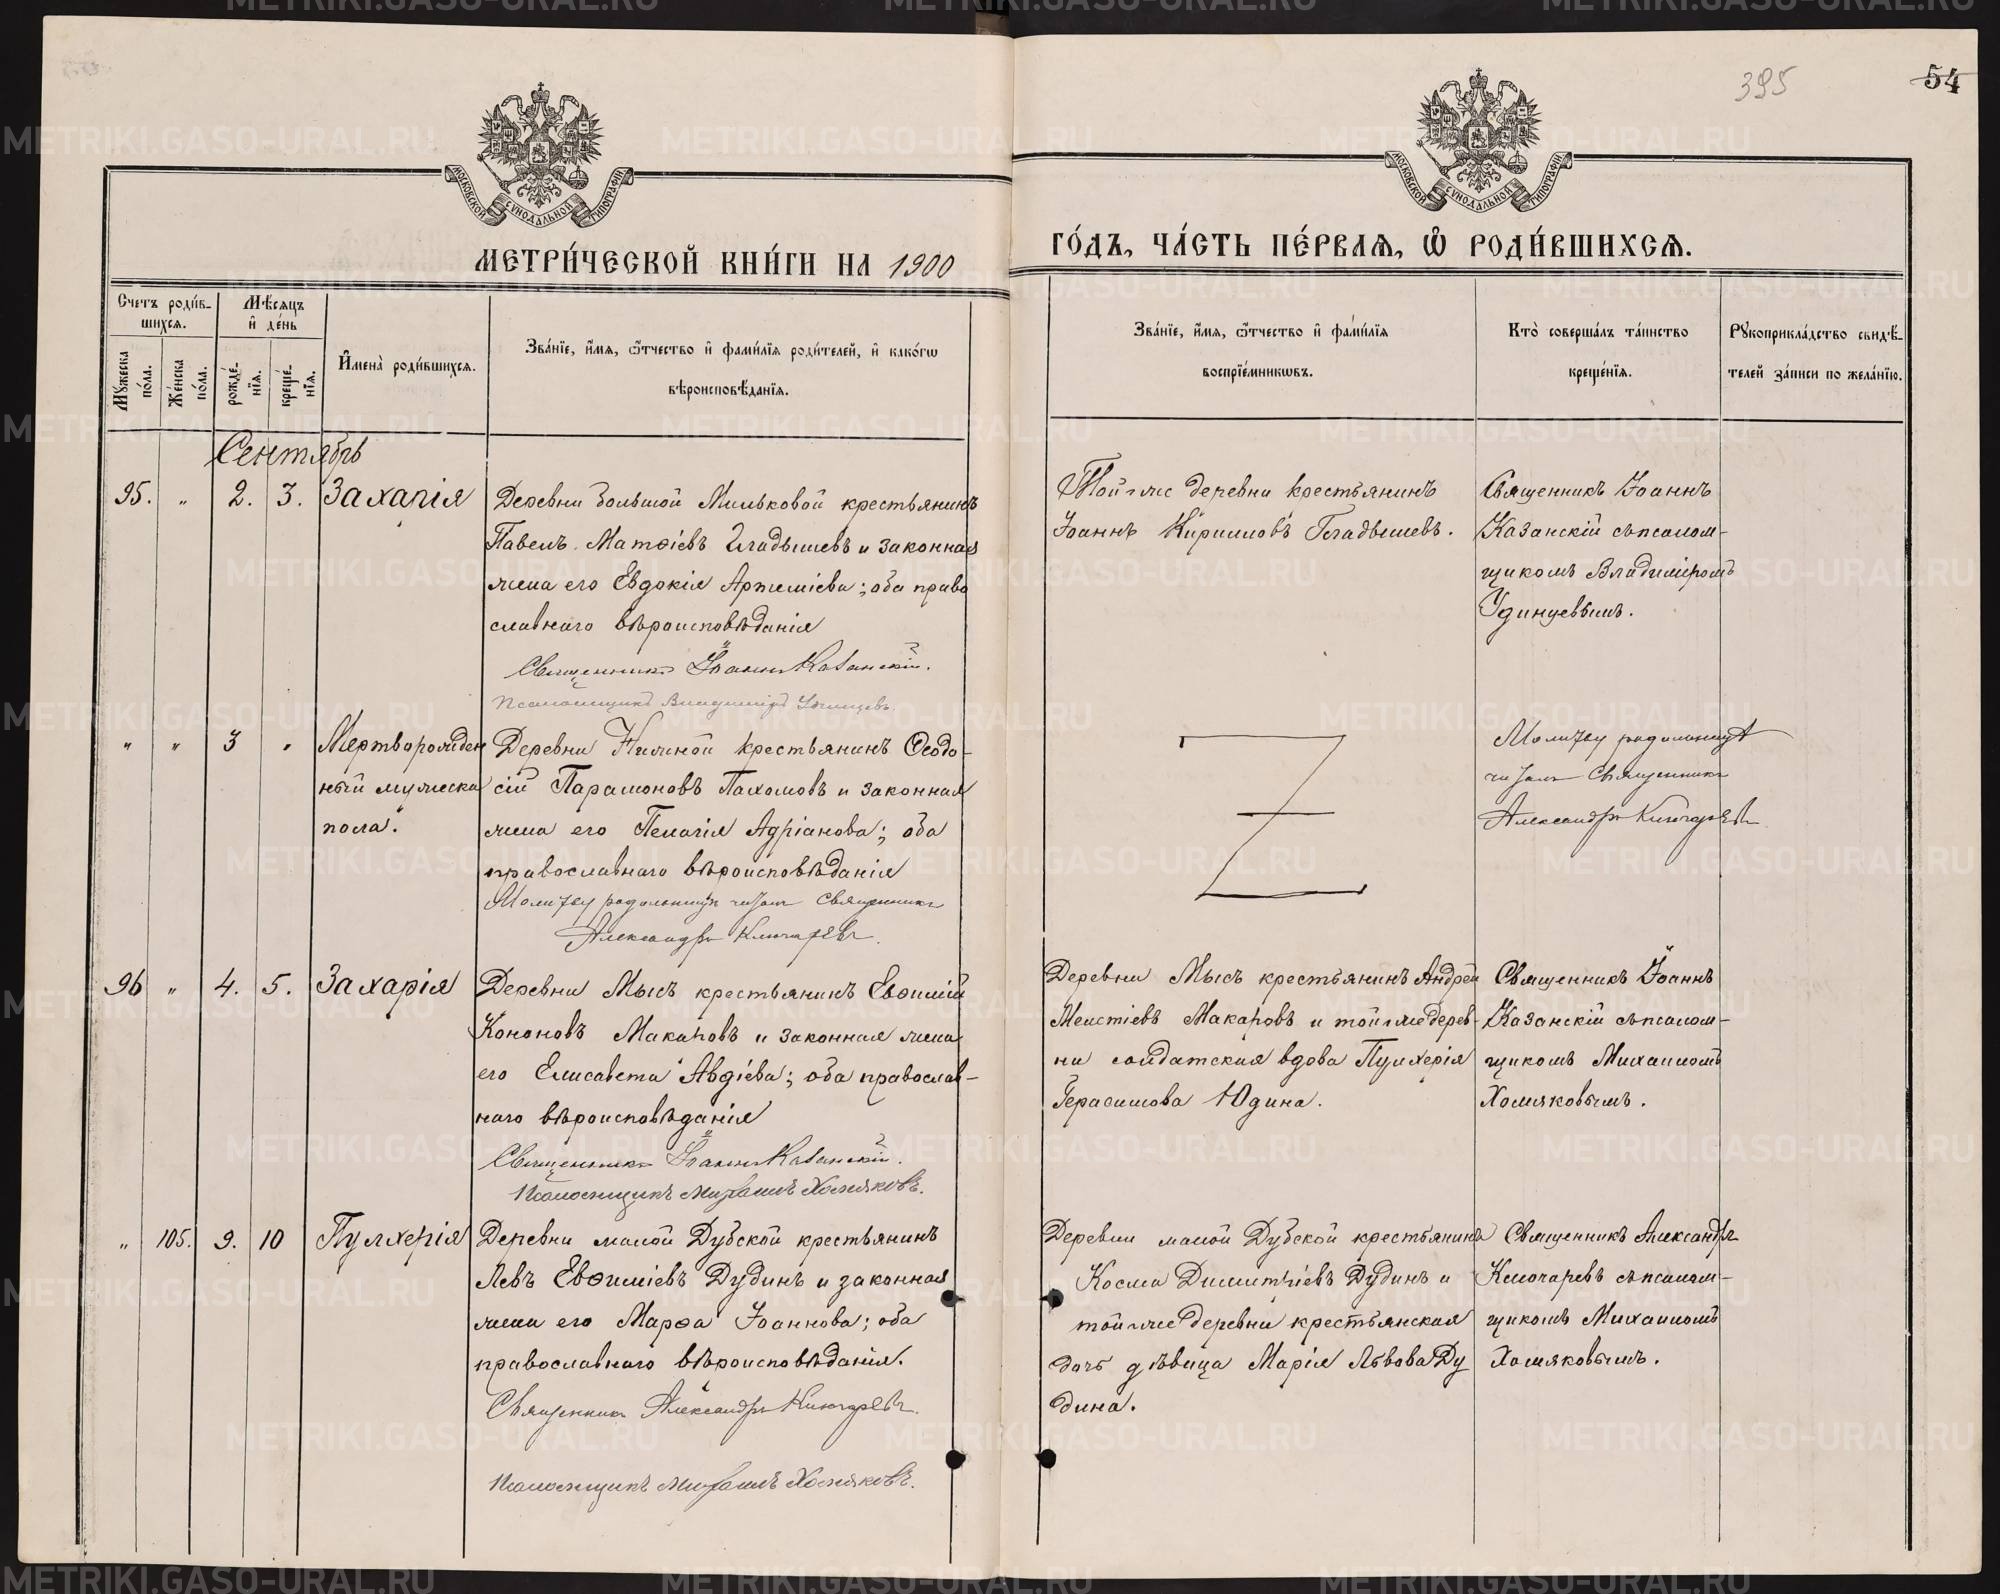 395
54
МОСКОВСКОЙ СѴНОДАЛЬНОЙ ТИПОГРАФІИ
МОСКОВСКОЙ СѴНОДАЛЬНОЙ ТИПОГРАФІИ
МЕТРИ́ЧЕСКОЙ КНИ́ГИ НА 1900
ГО́ДЪ, ЧА́СТЬ ПЕ́РВАѦ, Ѡ РОДИ́ВШИХСѦ.
Счетъ роди́в-
шихсѧ.
Мѣ́сѧцъ
и҆ де́нь
Мꙋ́жеска
по́ла.
Же́нска
по́ла.
рожде́-
нїѧ.
креще́-
нїѧ.
И҆мена̀ роди́вшихсѧ.
Зва́нїе, и҆́мѧ, ѻ҆́тчество и҆ фами́лїѧ роди́телей, и҆ како́гѡ
вѣроисповѣ́данїѧ.
Зва́нїе, и҆́мѧ, ѻ҆́тчество и҆ фами́лїѧ
воспрїе́мникѡвъ.
Кто̀ соверша́лъ та́инство
креще́нїѧ.
Рꙋкоприкла́дство свидѣ́-
телей за́писи по жела́нїю.
Сентябрь
95. „ 2. 3. Захарія
Деревни Большой Мильковой крестьянинъ
Павелъ Матѳіевъ Гладышевъ и законная
жена его Евдокія Артеміева; оба право
славнаго вѣроисповѣданія
Священникъ Іоаннъ Казанскій.
Псаломщикъ Владиміръ Удинцевъ.
Той же деревни крестьянинъ
Іоаннъ Кирилловъ Гладышевъ.
Священникъ Іоаннъ
Казанскій съ псалом-
щикомъ Владиміромъ
Удинцевымъ.
„ „ 3 „ Мертворожден
ный мужеска
пола.
Деревни Жилиной крестьянинъ Ѳеодо-
сій Парамоновъ Пахомовъ и законная
жена его Пелагія Адріанова; оба
православнаго вѣроисповѣданія
Молитву родильницѣ читалъ Священникъ
Александръ Ключаревъ.
Молитву родильницѣ
читалъ Священникъ
Александръ Ключаревъ.
96 „ 4. 5. Захарія
Деревни Мысъ крестьянинъ Евѳимій
Кононовъ Макаровъ и законная жена
его Елисавета Авдіева; оба православ-
наго вѣроисповѣданія
Священникъ Іоаннъ Казанскій.
Псаломщикъ Михаилъ Хомяковъ.
Деревни Мысъ крестьянинъ Андрей
Мелетіевъ Макаровъ и той же дерев-
ни солдатская вдова Пулхерія
Герасимова Юдина.
Священникъ Іоаннъ
Казанскій съ псалом-
щикомъ Михаиломъ
Хомяковымъ.
„ 105. 9. 10 Пулхерія
Деревни малой Дубской крестьянинъ
Левъ Евѳиміевъ Дудинъ и законная
жена его Марѳа Іоаннова; оба
православнаго вѣроисповѣданія.
Священникъ Александръ Ключаревъ.
Псаломщикъ Михаилъ Хомяковъ.
Деревни малой Дубской крестьянинъ
Косма Димитріевъ Дудинъ и
той же деревни крестьянская
дочь дѣвица Марія Львова Ду
дина.
Священникъ Александръ
Ключаревъ съ псалом-
щикомъ Михаиломъ
Хомяковымъ.
METRIKI.GASO-URAL.RU